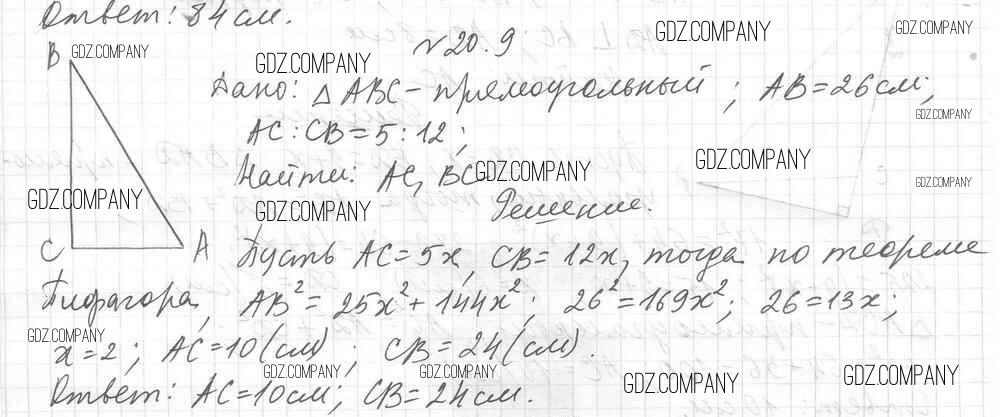 Ответ: 34 см.
№20.9
B GDZ.COMPANY
GDZ.COMPANY
GDZ.COMPANY
GDZ.COMPANY
Дано: △ABC - прямоугольный; AB = 26 см;
GDZ.COMPANY
AC : CB = 5 : 12;
GDZ.COMPANY
Найти: AC, BC GDZ.COMPANY
GDZ.COMPANY
GDZ.COMPANY
GDZ.COMPANY
Решение.
C A Пусть AC = 5x, CB = 12x, тогда по теореме
Пифагора, AB² = 25x² + 144x²; 26² = 169x²; 26 = 13x;
GDZ.COMPANY
x = 2; AC = 10 (см); CB = 24 (см).
GDZ.COMPANY GDZ.COMPANY GDZ.COMPANY GDZ.COMPANY
Ответ: AC = 10 см; CB = 24 см.